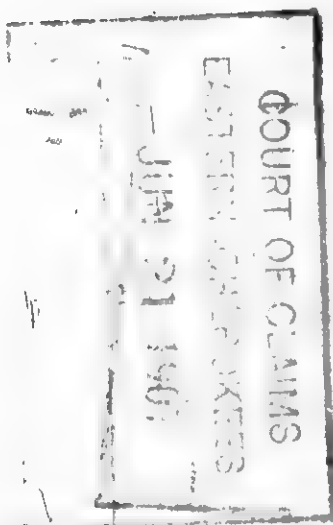 COURT OF CLAIMS
EASTERN CHEROKEES
JUN 21 1907